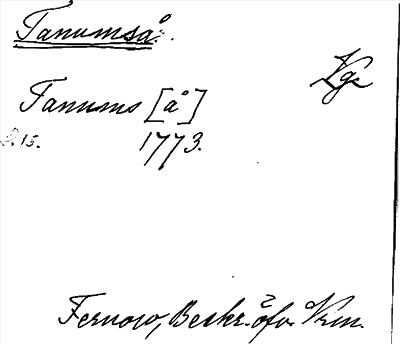 Tanumså.
Vg.
Tanums [å]
S. 15. 1773.
Fernow, Beskr. öfv. Vrm.